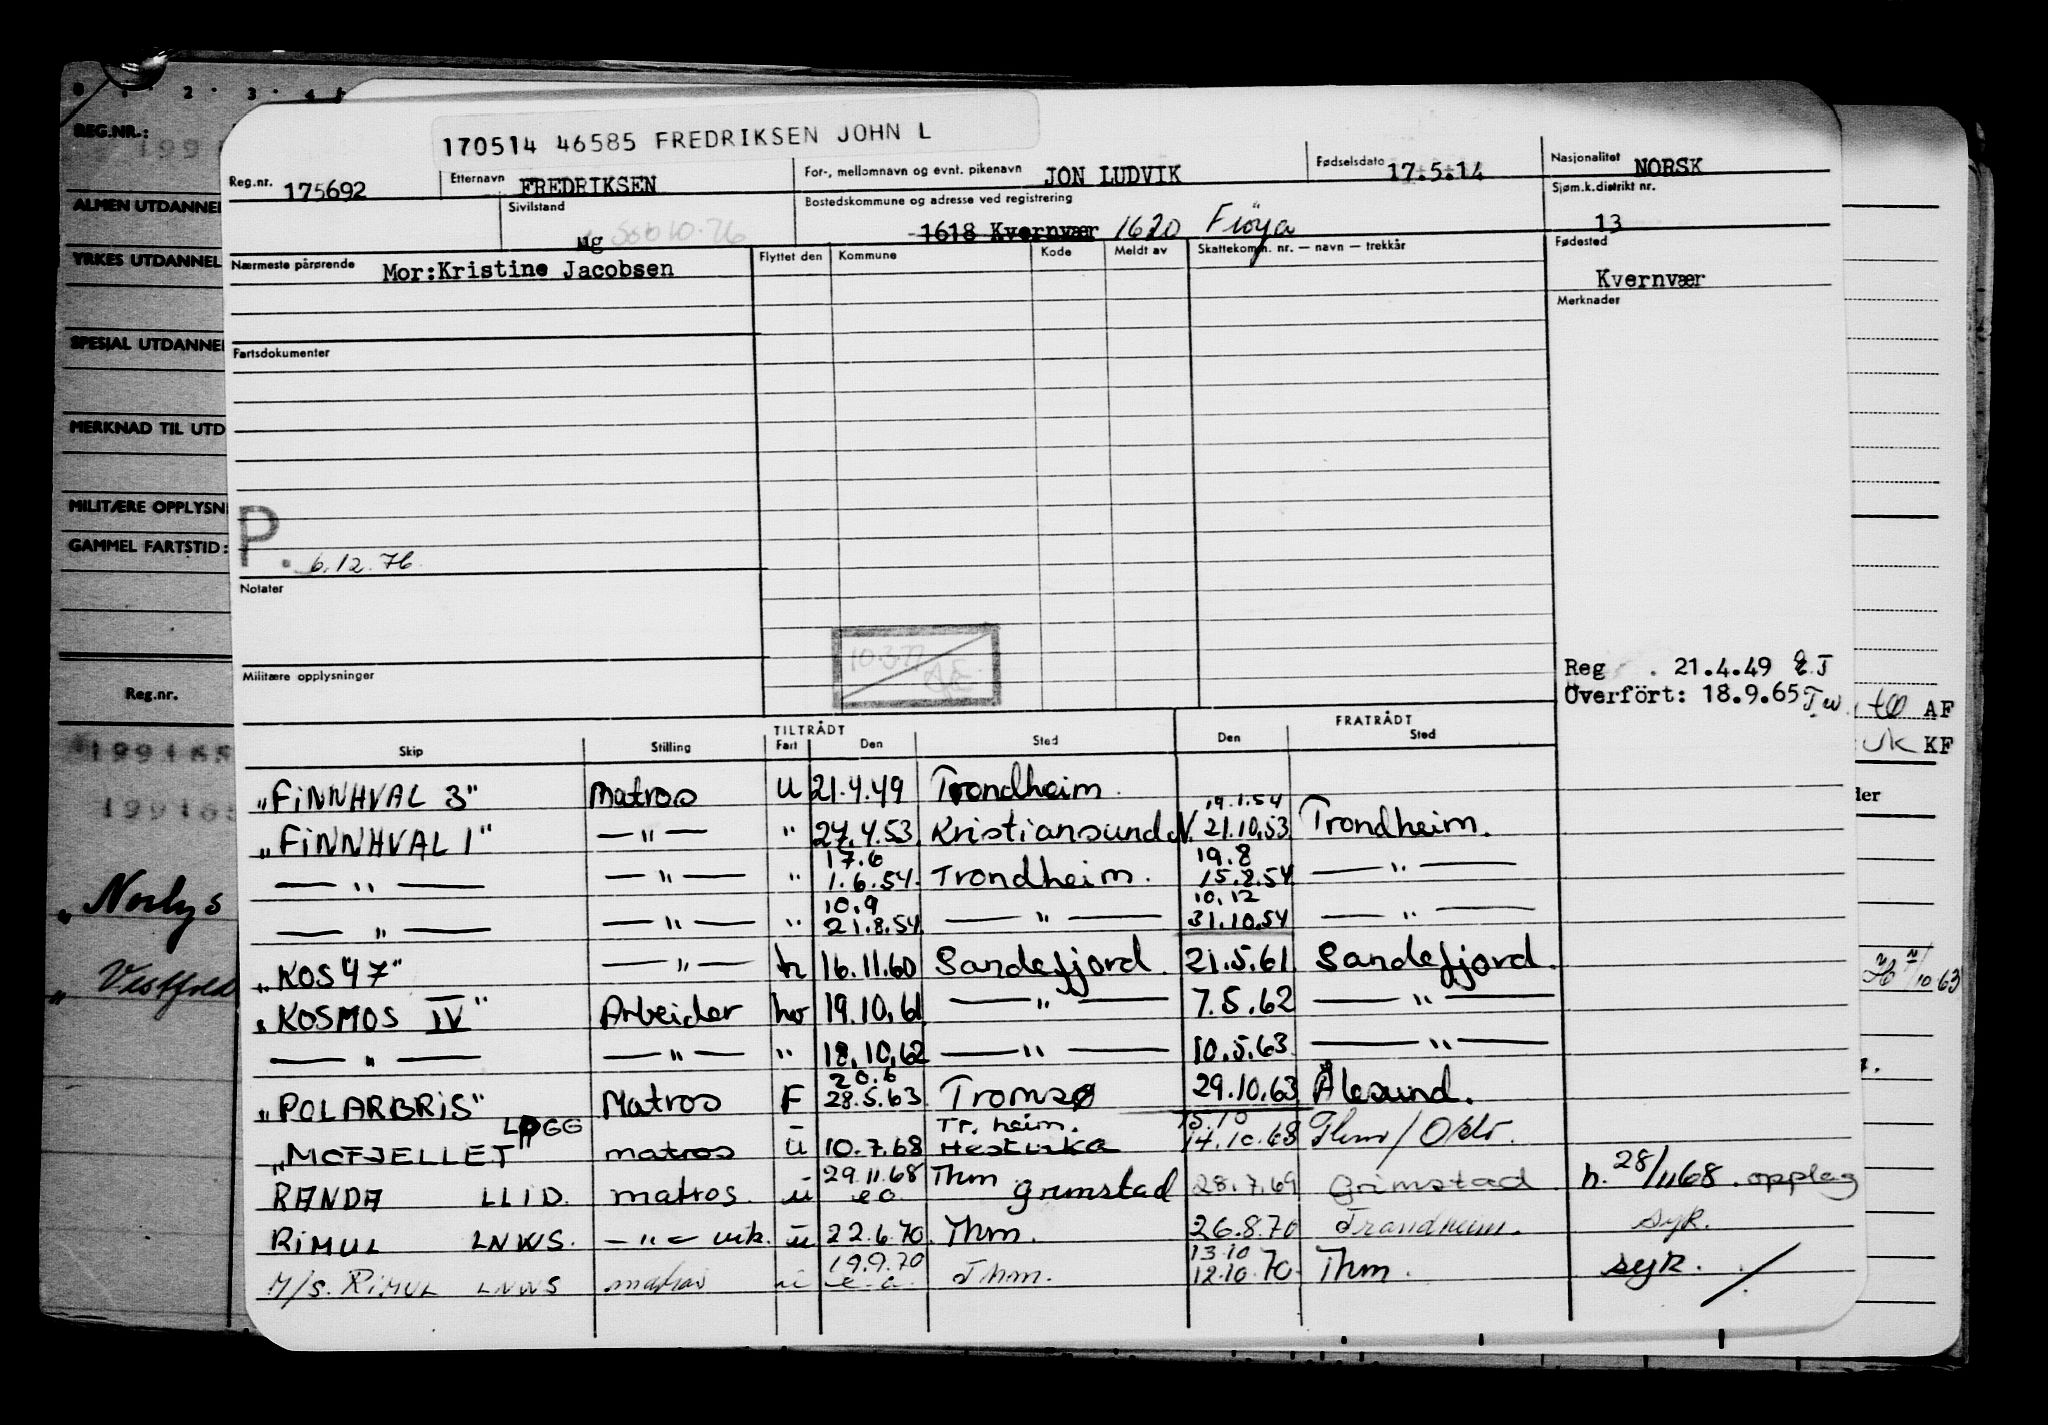 0 1 2 3 4 5
REG.NR.:
ALMEN UTDANNEL
YRKES UTDANNEL
SPESIAL UTDANNEL
MERKNAD TIL UTD
MILITÆRE OPPLYSN
GAMMEL FARTSTID:
Reg.nr.
199165
199165
"Norlys
"Vestfold
170514 46585 FREDRIKSEN JOHN L
Reg.nr. 175692 Etternavn FREDRIKSEN For-, mellomnavn og evnt. pikenavn JON LUDVIK Fødselsdato 17.5.14 Nasjonalitet NORSK
Sivilstand ug Bostedskommune og adresse ved registrering 1618 Kvernvær 1620 Fröya Sjøm.k.distrikt nr. 13
Nærmeste pårørende Mor:Kristine Jacobsen Flyttet den Kommune Kode Meldt av Skattekomm. nr. — navn — trekkår Fødested
Kvernvær
Merknader
Fartsdokumenter
P. 6.12.76
Notater
10.3.77
Militære opplysninger
Reg . 21.4.49 E.J
Overfört: 18.9.65 Tw
AF
KF
der
10 63
TILTRÅDT FRATRÅDT
Skip Stilling Fart Den Sted Den Sted
"FINNHVAL 3" Matros U 21.4.49 Trondheim.
19.1.54
"FINNHVAL 1" — " — " 27.4.53 Kristiansund N. 21.10.53 Trondheim.
17.6 19.8
— " — — " — " 1.6.54. Trondheim. 15.8.54 — " —
10.9 10.12
— " — — " — " 21.8.54 — " — 31.10.54 — " —
"KOS 47" — " — h 16.11.60 Sandefjord. 21.5.61 Sandefjord.
"KOSMOS IV" Arbeider hv 19.10.61 — " — 7.5.62 — " —
— " — — " — " 18.10.62 — " — 10.5.63 — " —
20.6
"POLARBRIS" Matros F 28.5.63 Tromsø 29.10.63 Ålesund.
LDGG Tr.heim. 15.10
"MOFJELLET" matros u 10.7.68 14.10.68 Thm/Oslo.
29.11.68 Thm
RANDA LLID. matros. u e o grimstad 28.7.69 Grimstad h. 28/11 68. opplag
RIMUL LNWS. — " — u 22.6.70. Thm. 26.8.70 Trondheim. syk.
19.9.70 13.10
M/S. RIMUL LNWS matros u e.o. Thm. 12.10.70. Thm. syk.